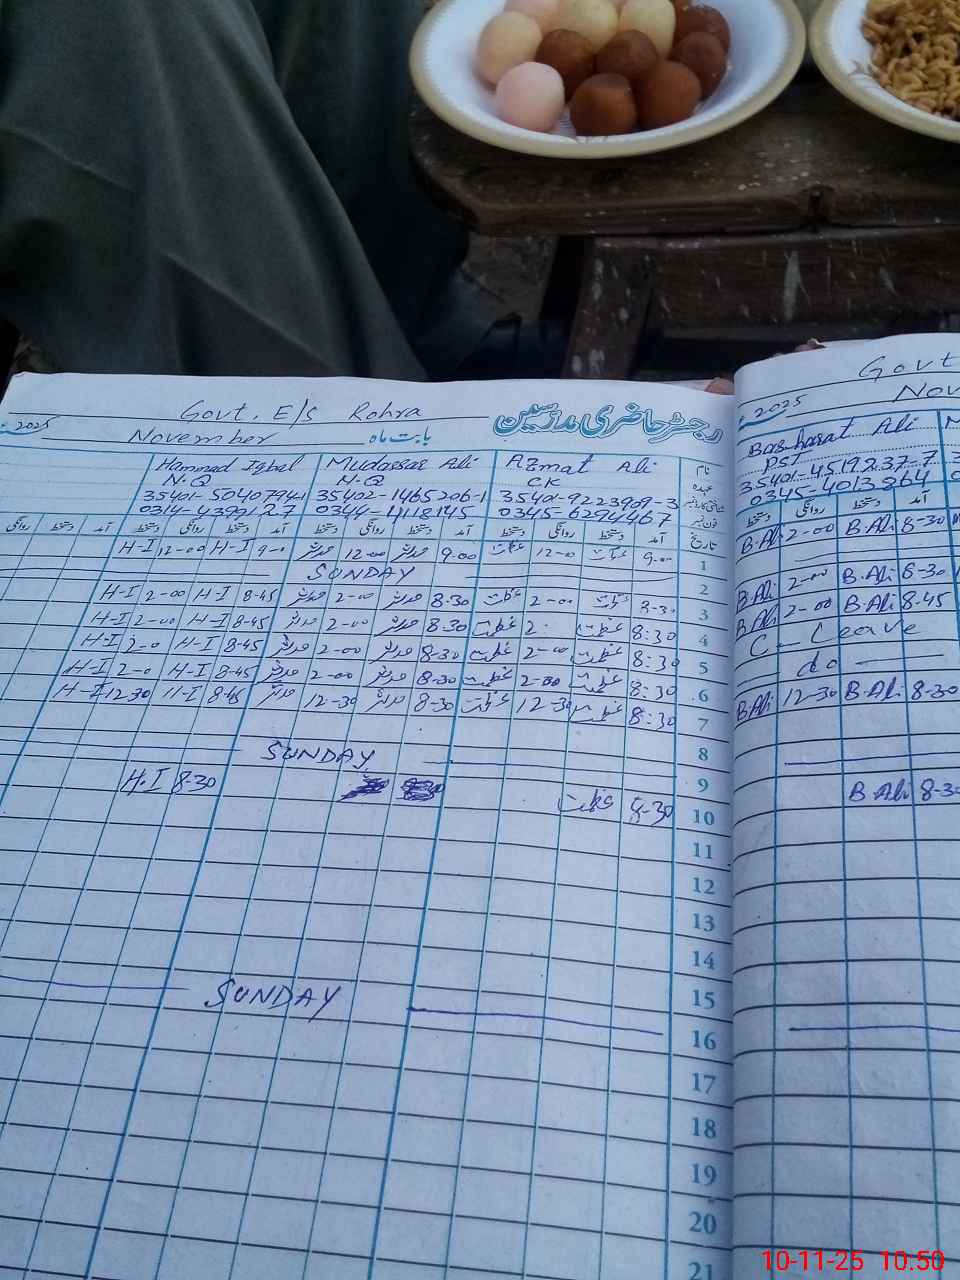 Govt. E/S Rohra
رجسٹر حاضری مدرسین
2025
November بابت ماہ
Hammad Iqbal Mudassar Ali Azmat Ali نام
N.Q N.Q CK عہدہ
35401-5040794-1 35402-1465206-1 35401-9223909-3
0314-4399127 0344-4118145 0345-6294467 فون نمبر
روانگی دستخط آمد دستخط روانگی دستخط آمد دستخط روانگی دستخط آمد دستخط روانگی دستخط آمد تاریخ
H-I 12-00 H-I 9-0 مدثر 12-00 مدثر 9.00 عظمت 12-0 عظمت 9.00 1
SUNDAY 2
H-I 2-00 H-I 8-45 مدثر 2-00 مدثر 8.30 عظمت 2-00 عظمت 8-30 3
H-I 2-00 H-I 8-45 مدثر 2-00 مدثر 8.30 عظمت 2: عظمت 8:30 4
H-I 2-0 H-I 8-45 مدثر 2-00 مدثر 8.30 عظمت 2-00 عظمت 8:30 5
H-I 2-0 H-I 8-45 مدثر 2-00 مدثر 8-30 عظمت 2-00 عظمت 8:30 6
H-I 12.30 H-I 8-45 مدثر 12-30 مدثر 8-30 عظمت 12-30 عظمت 8:30 7
8
SUNDAY 9
H.I 8-30 عظمت 8-30 10
11
12
13
14
15
SUNDAY 16
17
18
19
20
21
Govt
Nov
2025
Basharat Ali
PST
35401-4519237-7
0345-4013264
دستخط روانگی دستخط آمد
B.Ali 2-00 B.Ali 8-30
B.Ali 2-00 B.Ali 8-30
B.Ali 2-00 B.Ali 8-45
C-Leave
do
B.Ali 12-30 B.Ali 8-30
B.Ali 8-30
10-11-25 10.50